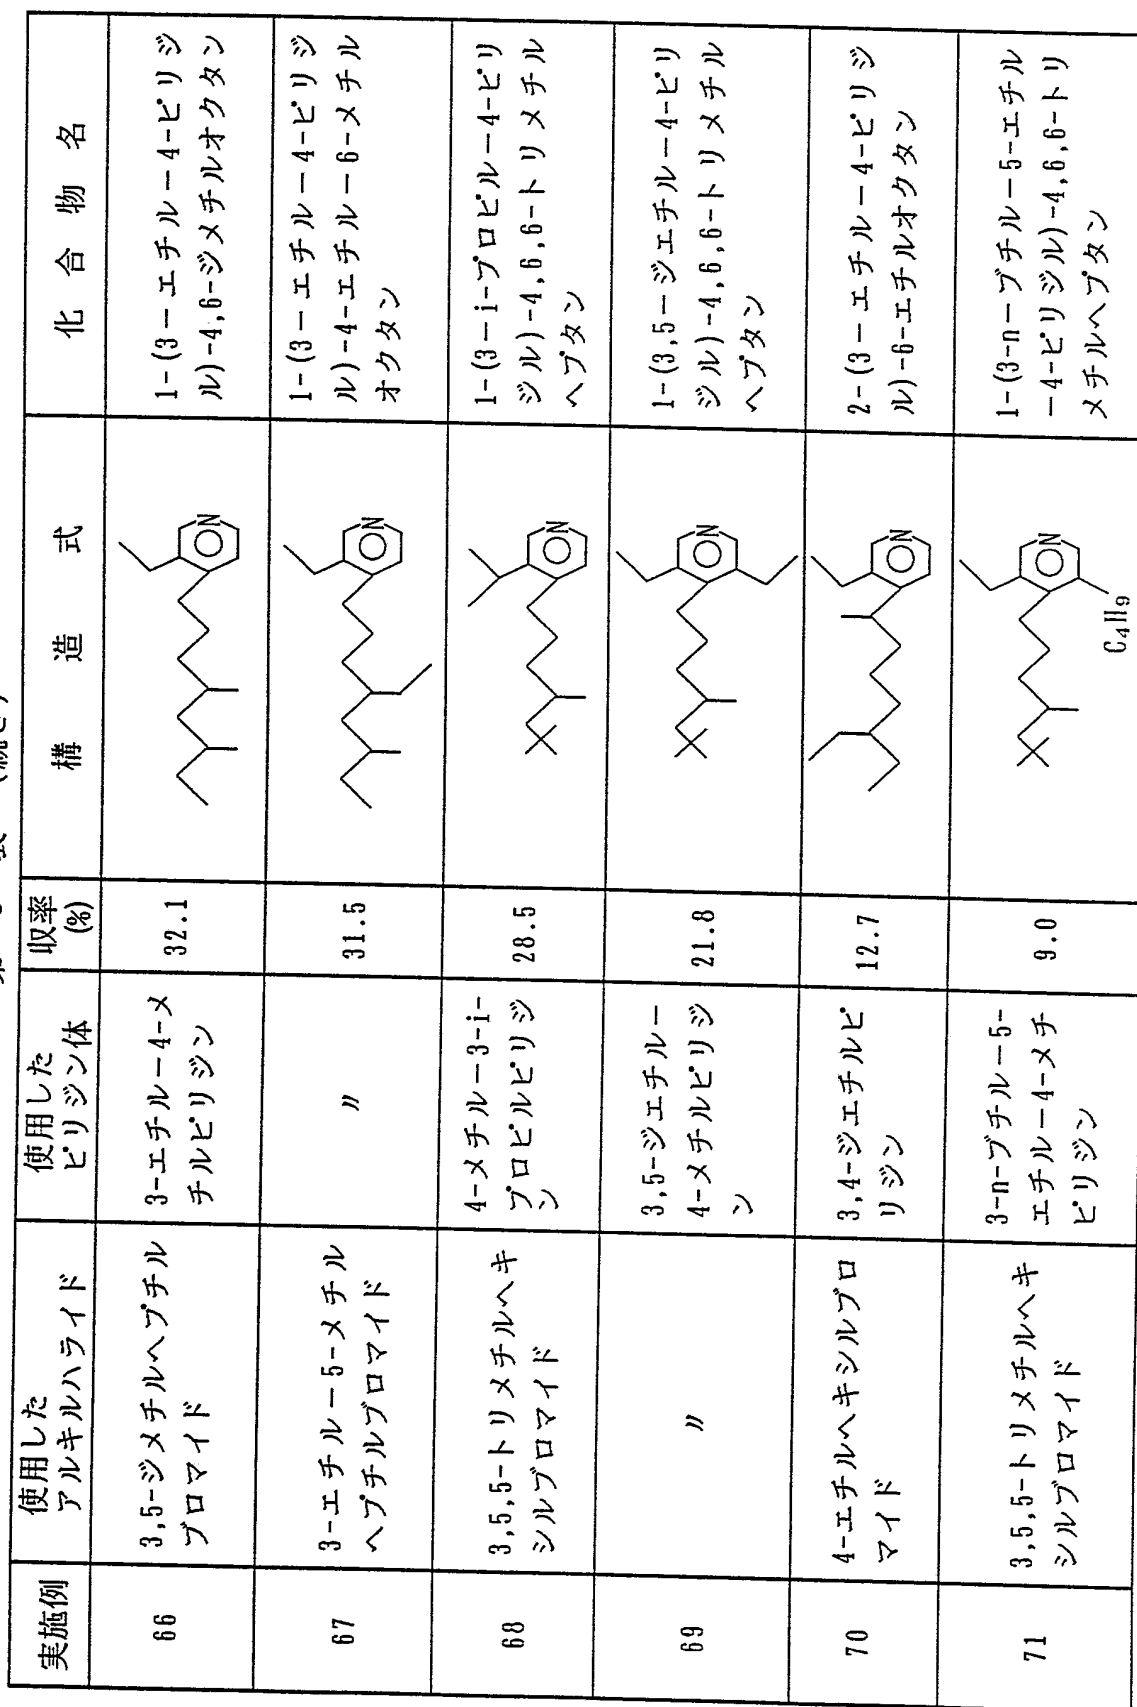 表 (続き)
実施例
使用した
アルキルハライド
使用した
ピリジン体
収率
(%)
構 造 式
化 合 物 名
66
3,5-ジメチルヘプチル
ブロマイド
3-エチル-4-メ
チルピリジン
32.1
N
1-(3-エチル-4-ピリジ
ル)-4,6-ジメチルオクタン
67
3-エチル-5-メチル
ヘプチルブロマイド
〃
31.5
N
1-(3-エチル-4-ピリジ
ル)-4-エチル-6-メチル
オクタン
68
3,5,5-トリメチルヘキ
シルブロマイド
4-メチル-3-i-
プロピルピリジ
ン
28.5
N
1-(3-i-プロピル-4-ピリ
ジル)-4,6,6-トリメチル
ヘプタン
69
〃
3,5-ジエチル-
4-メチルピリジ
ン
21.8
N
1-(3,5-ジエチル-4-ピリ
ジル)-4,6,6-トリメチル
ヘプタン
70
4-エチルヘキシルブロ
マイド
3,4-ジエチルピ
リジン
12.7
N
2-(3-エチル-4-ピリジ
ル)-6-エチルオクタン
71
3,5,5-トリメチルヘキ
シルブロマイド
3-n-ブチル-5-
エチル-4-メチ
ピリジン
9.0
N
C4H9
1-(3-n-ブチル-5-エチル
-4-ピリジル)-4,6,6-トリ
メチルヘプタン